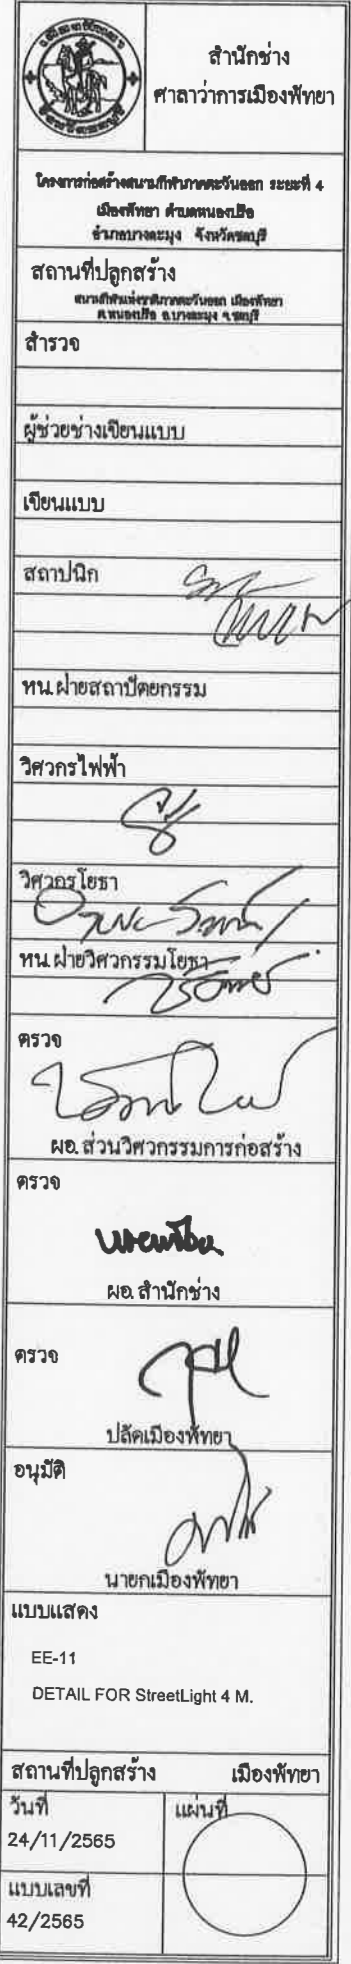 สำนักช่าง
ศาลาว่าการเมืองพัทยา
โครงการก่อสร้างสนามกีฬาภาคตะวันออก ระยะที่ 4
เมืองพัทยา ตำบลหนองปรือ
อำเภอบางละมุง จังหวัดชลบุรี
สถานที่ปลูกสร้าง
สนามกีฬาแห่งชาติภาคตะวันออก เมืองพัทยา
ต.หนองปรือ อ.บางละมุง จ.ชลบุรี
สำรวจ
ผู้ช่วยช่างเขียนแบบ
เขียนแบบ
สถาปนิก
หน.ฝ่ายสถาปัตยกรรม
วิศวกรไฟฟ้า
วิศวกรโยธา
หน.ฝ่ายวิศวกรรมโยธา
ตรวจ
ผอ.ส่วนวิศวกรรมการก่อสร้าง
ตรวจ
ผอ.สำนักช่าง
ตรวจ
ปลัดเมืองพัทยา
อนุมัติ
นายกเมืองพัทยา
แบบแสดง
EE-11
DETAIL FOR StreetLight 4 M.
สถานที่ปลูกสร้าง เมืองพัทยา
วันที่ แผ่นที่
24/11/2565
แบบเลขที่
42/2565